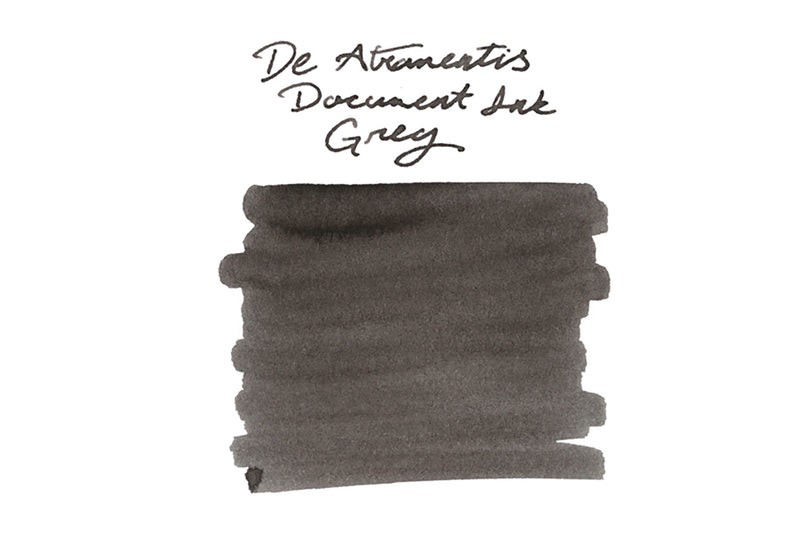 De Atramentis
Document Ink
Grey